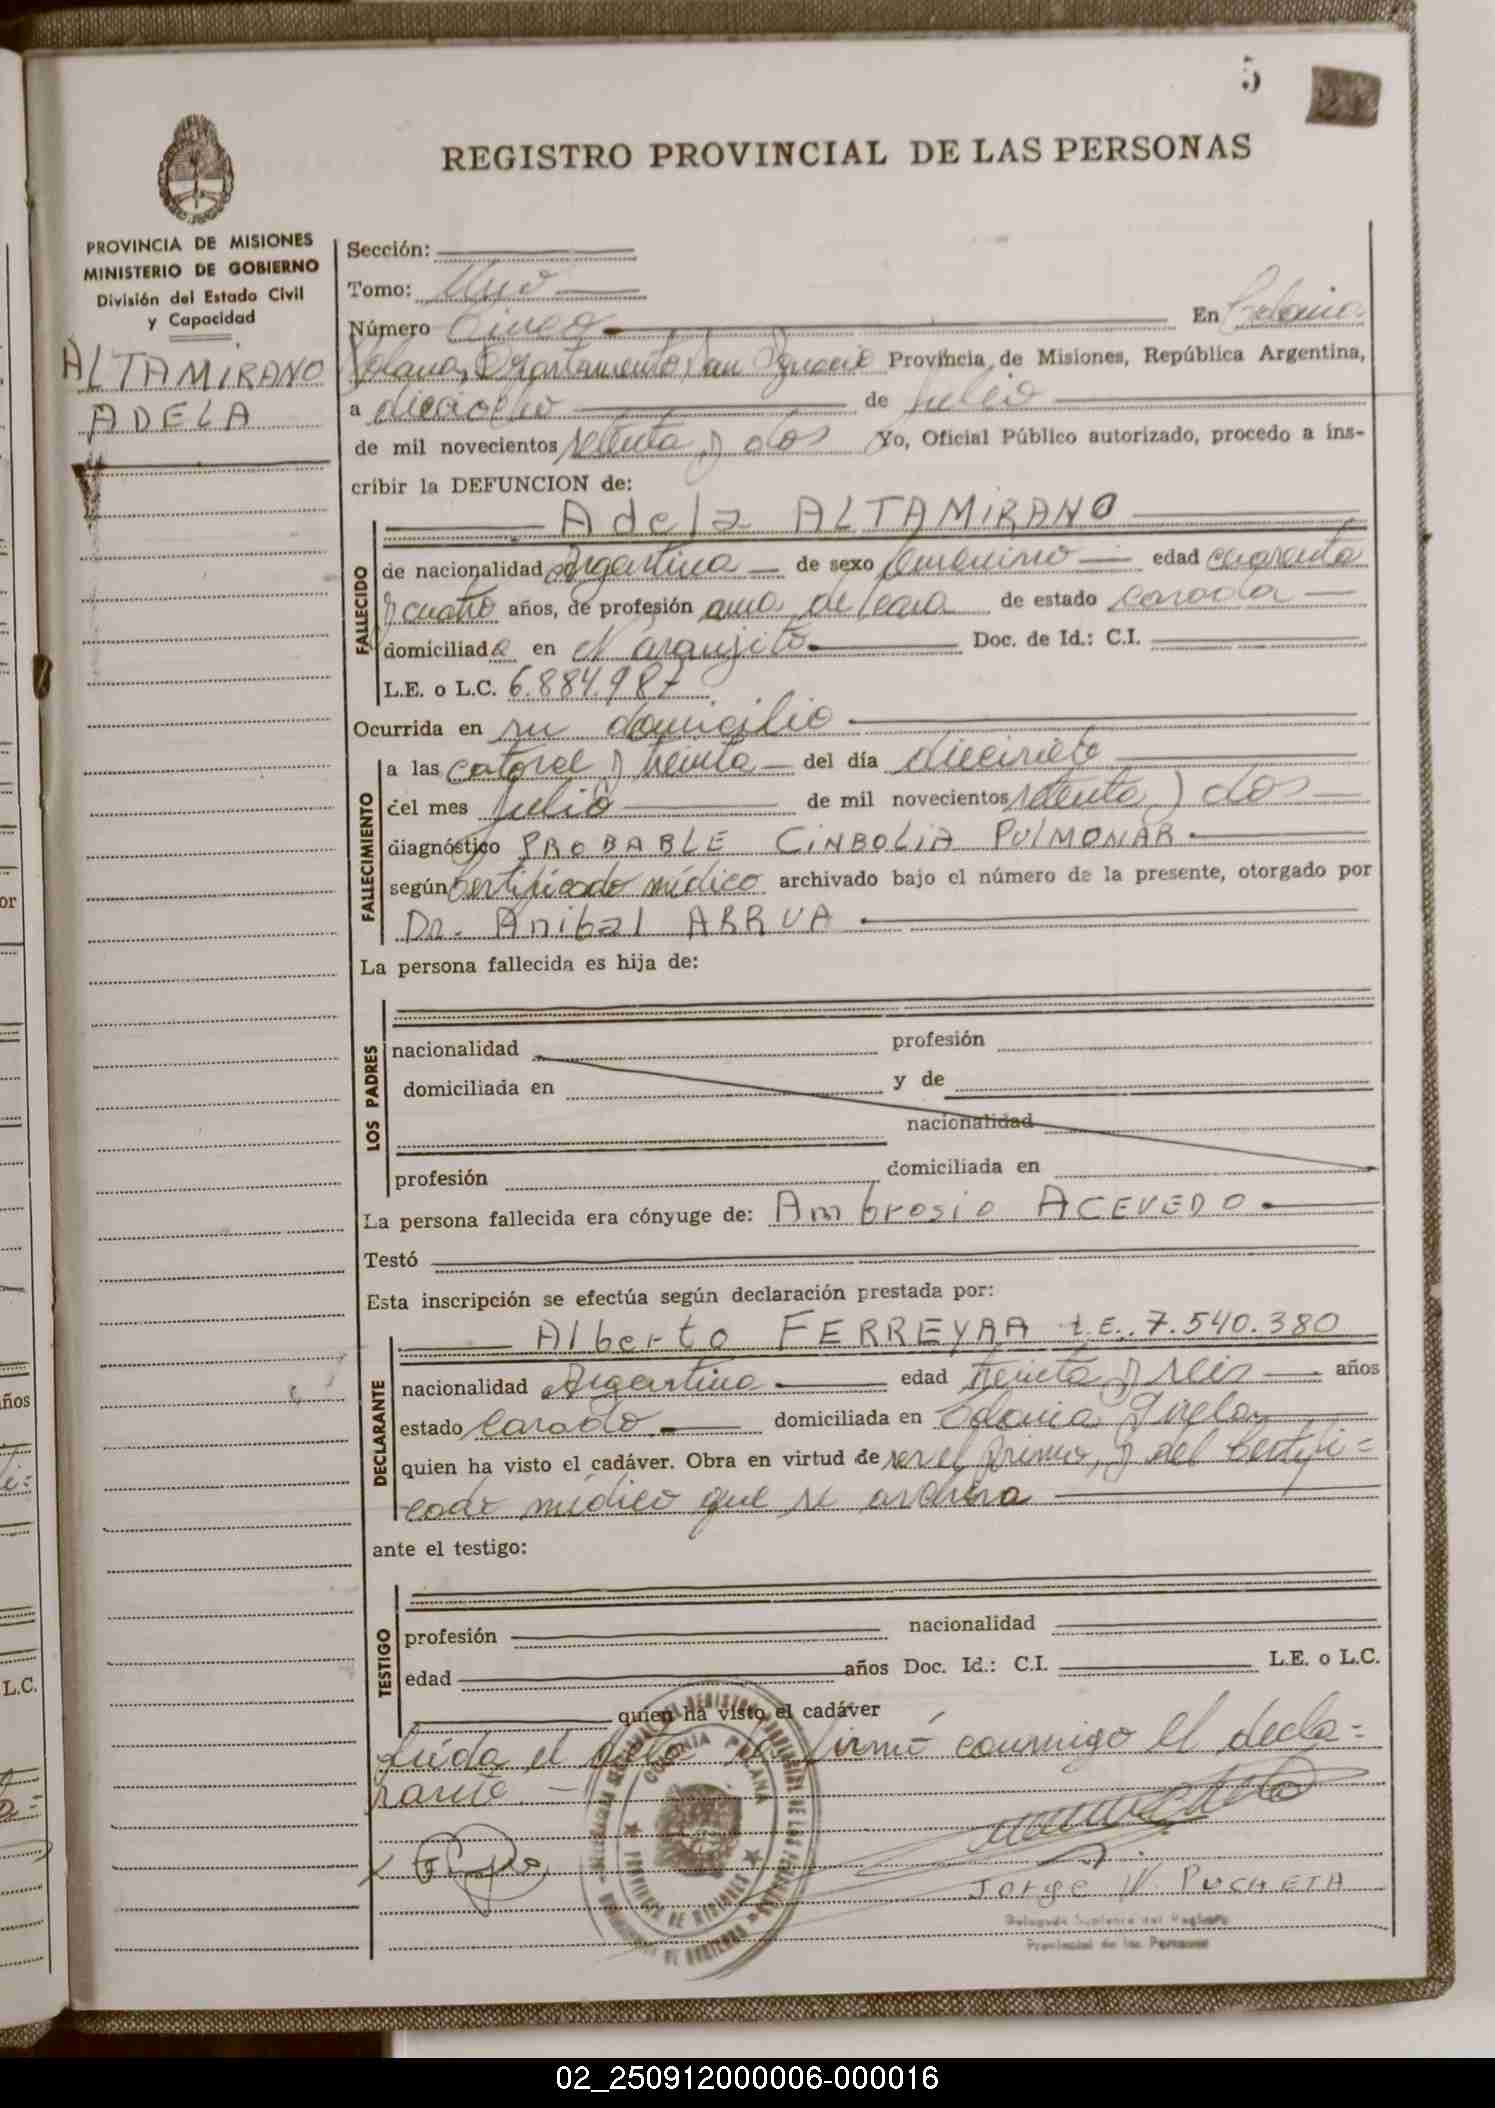 5
REGISTRO PROVINCIAL DE LAS PERSONAS
PROVINCIA DE MISIONES
MINISTERIO DE GOBIERNO
División del Estado Civil
y Capacidad
ALTAMIRANO
ADELA
Sección:
Tomo: Uno
Número Cinco En Colonia
Polana, Departamento San Ignacio Provincia de Misiones, República Argentina,
a dieciocho de Julio
de mil novecientos setenta y dos Yo, Oficial Público autorizado, procedo a ins-
cribir la DEFUNCION de:
Adela ALTAMIRANO
FALLECIDO
de nacionalidad Argentina de sexo femenino edad cuarenta
y cuatro años, de profesión ama de casa de estado casada
domiciliada en Ñ arguijito Doc. de Id.: C.I.
L.E. o L.C. 6.884.987
Ocurrida en su domicilio
FALLECIMIENTO
a las catorce y treinta del día diecisiete
del mes Julio de mil novecientos setenta y dos
diagnóstico PROBABLE CINBOLIA PULMONAR
según Certificado médico archivado bajo el número de la presente, otorgado por
Dr. Anibal ARRUA
La persona fallecida es hija de:
LOS PADRES
nacionalidad profesión
domiciliada en y de
nacionalidad
profesión domiciliada en
La persona fallecida era cónyuge de: Ambrosio ACEVEDO
Testó
Esta inscripción se efectúa según declaración prestada por:
Alberto FERREYRA L.E. 7.540.380
DECLARANTE
nacionalidad Argentina edad treinta y seis años
estado Casado domiciliada en Colonia
quien ha visto el cadáver. Obra en virtud de ser el primo, y del Certifi=
cado médico que se archiva
ante el testigo:
TESTIGO
profesión nacionalidad
edad años Doc. Id.: C.I. L.E. o L.C.
quien ha visto el cadáver
Leída el acta la firmó conmigo el decla=
rante. -
COLONIA POLANA
PROVINCIA DE MISIONES
Jorge V. PUCHETA
Delegado Suplente del Registro
Provincial de las Personas
años
L.C.
02_250912000006-000016